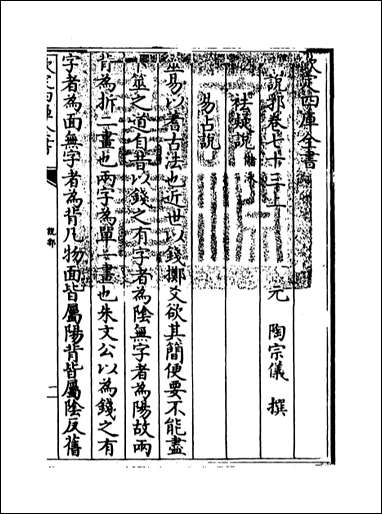 欽定四庫全書
説郛卷七十三上
元 陶宗儀 撰
祛疑説
易占説
筮易以蓍古法也近世以錢擲爻欲其簡便要不能盡
卜筮之道自昔以錢之有字者為陰無字者為陽故兩
背為拆二畫也兩字為單一畫也朱文公以為錢之有
字者為面無字者為背凡物面皆屬陽背皆屬陰反舊
欽定四庫全書
説郛